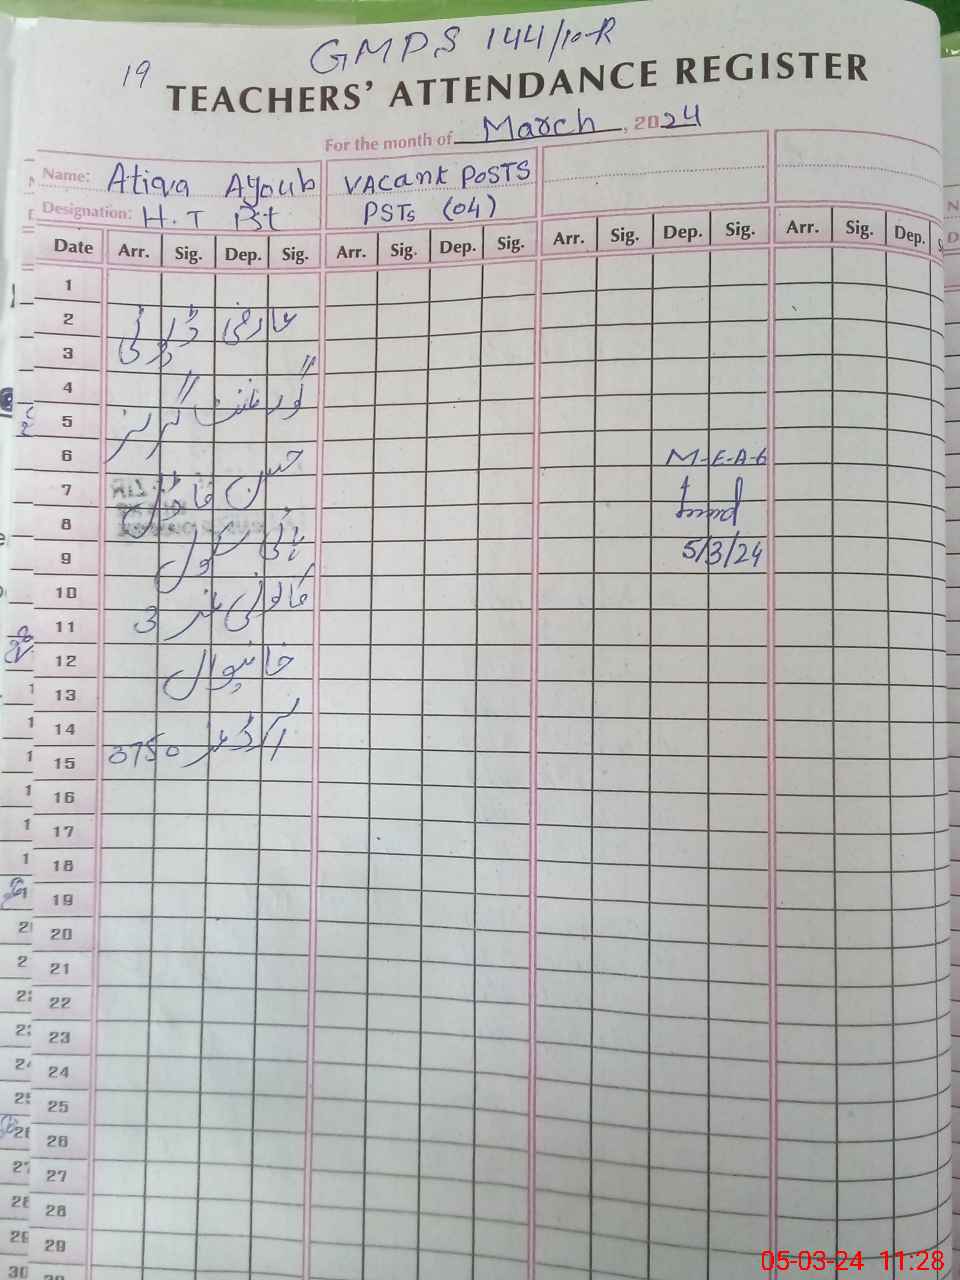 GMPS 144/10-R
19
TEACHERS' ATTENDANCE REGISTER
For the month of March, 2024
Name: Atiqa Ayoub VACANT POSTS
Designation: H.T PSTs (04)
Date Arr. Sig. Dep. Sig. Arr. Sig. Dep. Sig. Arr. Sig. Dep. Sig. Arr. Sig. Dep.
1
2 عارضی
3
4
گورنمنٹ گرلز
5
6 M-E-A-6
7
8
ہائی سکول
9 5/3/24
10
کالونی نمبر 3
11
12 خانیوال
13
14
3750
15
16
17
18
19
20
21
22
23
24
25
26
27
28
29
05-03-24 11:28